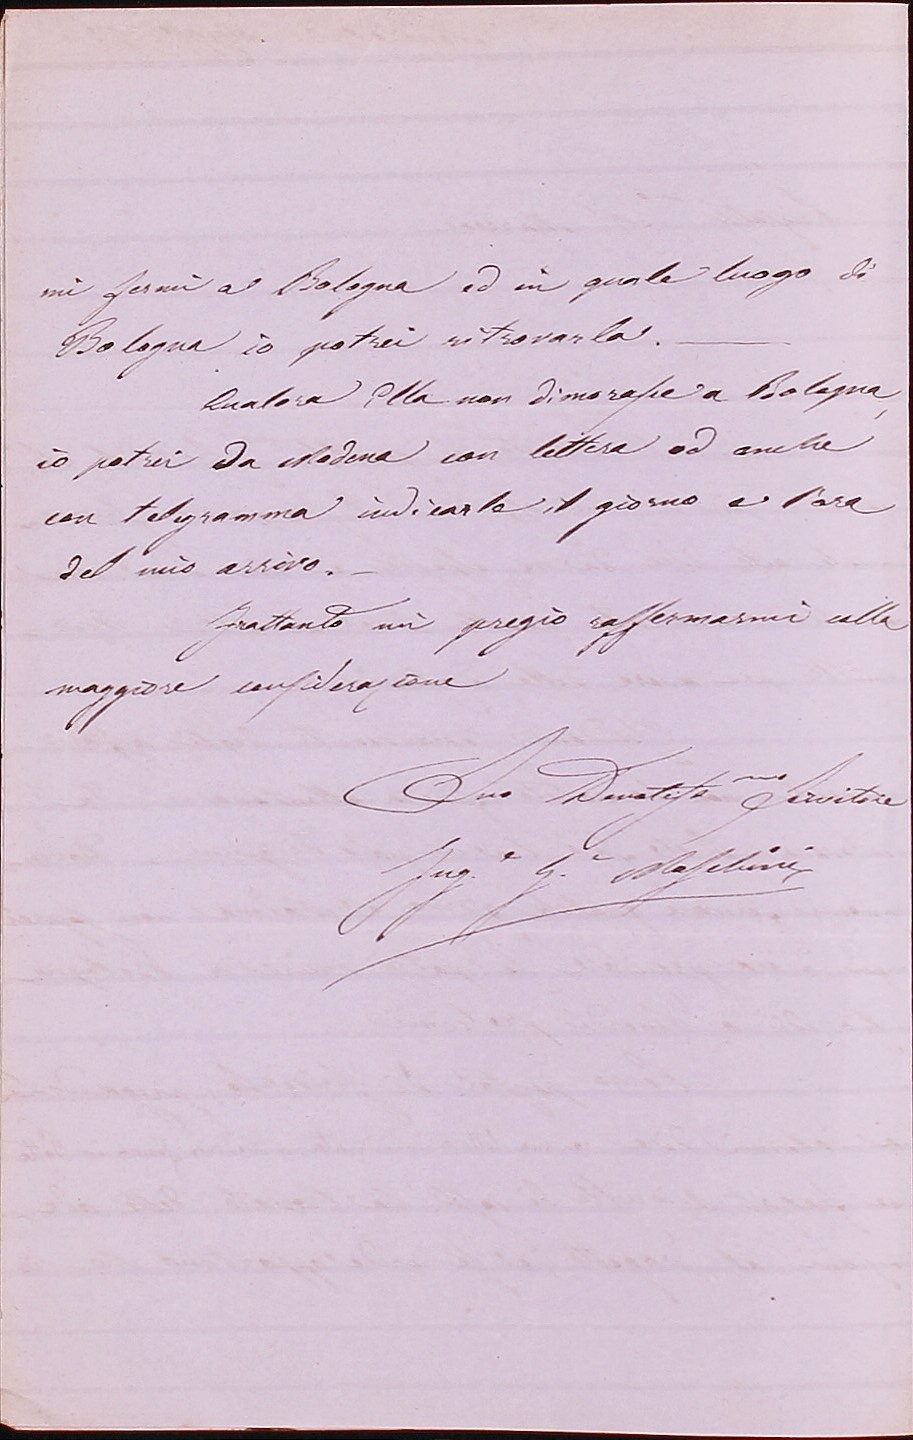 mi fermi a Bologna ed in quale luogo di
Bologna io potrei ritrovarla. ———
Qualora Ella non dimorasse a Bologna,
io potrei da Modena con lettera od anche
con telegramma indicarle il giorno e l'ora
del mio arrivo. —
Frattanto mi pregio raffermarmi colla
maggiore considerazione
Suo Devotissmo Servitore
Ing.e G.e